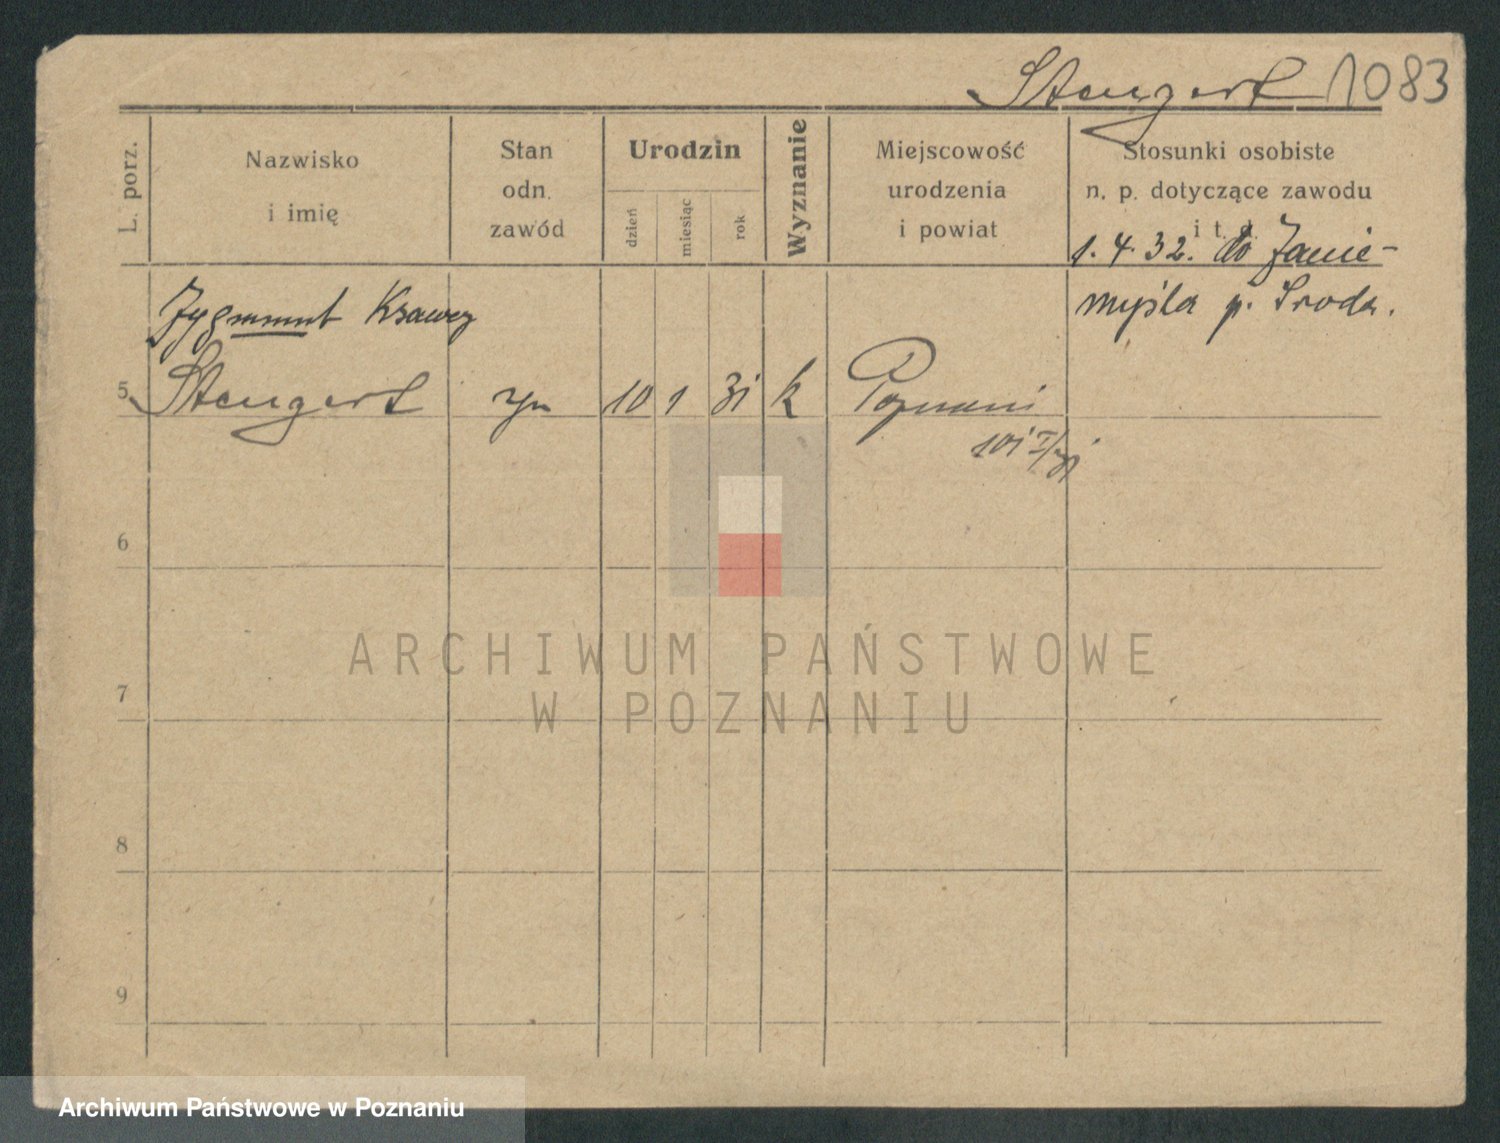 Stengert 1083
L. porz.
Nazwisko
i imię
Stan
odn.
zawód
Urodzin
dzień
miesiąc
rok
Wyznanie
Miejscowość
urodzenia
i powiat
Stosunki osobiste
n. p. dotyczące zawodu
i t. d.
1. 4. 32. do Zanie-
myśla p. Środa.
Zygmunt Ksawery
5 Stengert syn 10 1 31 k Poznań
6
7
8
9
ARCHIWUM PAŃSTWOWE
W POZNANIU
Archiwum Państwowe w Poznaniu